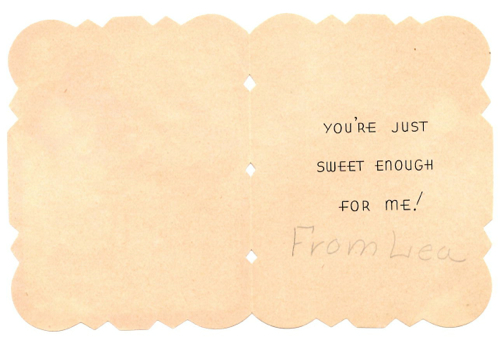 YOU'RE JUST
SWEET ENOUGH
FOR ME!
From Lea